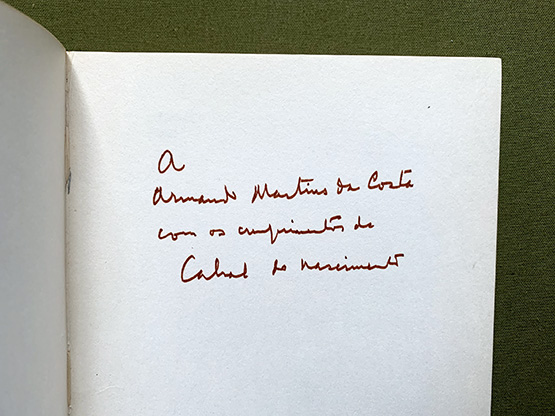 A
Armando Martins da Costa
com os cumprimentos de
Cabral do Nascimento